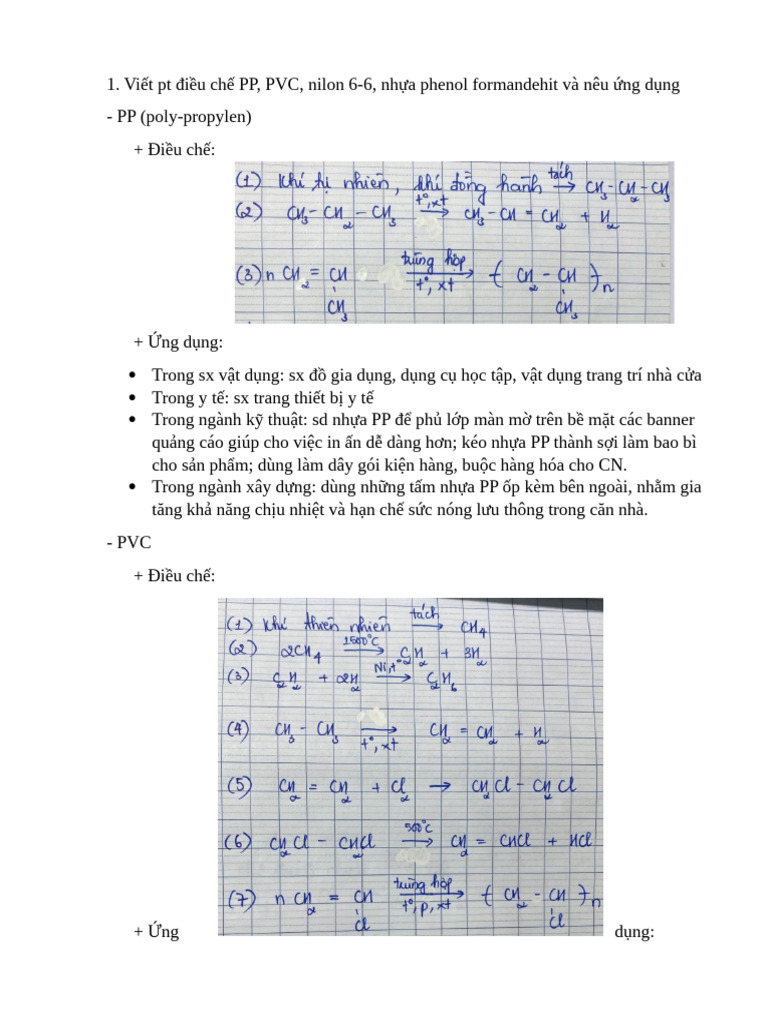 1. Viết pt điều chế PP, PVC, nilon 6-6, nhựa phenol formandehit và nêu ứng dụng
- PP (poly-propylen)
+ Điều chế:
(1) Khí tự nhiên, khí đồng hành tách→ CH₃-CH₂-CH₃
(2) CH₃-CH₂-CH₃ t°,xt→ CH₃-CH=CH₂ + H₂
(3) n CH₂ = CH trùng hợp / t°, xt→ -( CH₂ - CH )-n
CH₃ CH₃
+ Ứng dụng:
• Trong sx vật dụng: sx đồ gia dụng, dụng cụ học tập, vật dụng trang trí nhà cửa
• Trong y tế: sx trang thiết bị y tế
• Trong ngành kỹ thuật: sd nhựa PP để phủ lớp màn mờ trên bề mặt các banner
quảng cáo giúp cho việc in ấn dễ dàng hơn; kéo nhựa PP thành sợi làm bao bì
cho sản phẩm; dùng làm dây gói kiện hàng, buộc hàng hóa cho CN.
• Trong ngành xây dựng: dùng những tấm nhựa PP ốp kèm bên ngoài, nhằm gia
tăng khả năng chịu nhiệt và hạn chế sức nóng lưu thông trong căn nhà.
- PVC
+ Điều chế:
(1) Khí thiên nhiên tách→ CH₄
(2) 2CH₄ 1500°C→ C₂H₂ + 3H₂
(3) C₂H₂ + 2H₂ Ni,t°→ C₂H₆
(4) CH₃ - CH₃ t°, xt→ CH₂ = CH₂ + H₂
(5) CH₂ = CH₂ + Cl₂ → CH₂Cl - CH₂Cl
(6) CH₂Cl - CH₂Cl 500°C→ CH₂ = CHCl + HCl
(7) n CH₂ = CH trùng hợp / t°, p, xt→ -( CH₂ - CH )-n
Cl Cl
+ Ứng dụng: